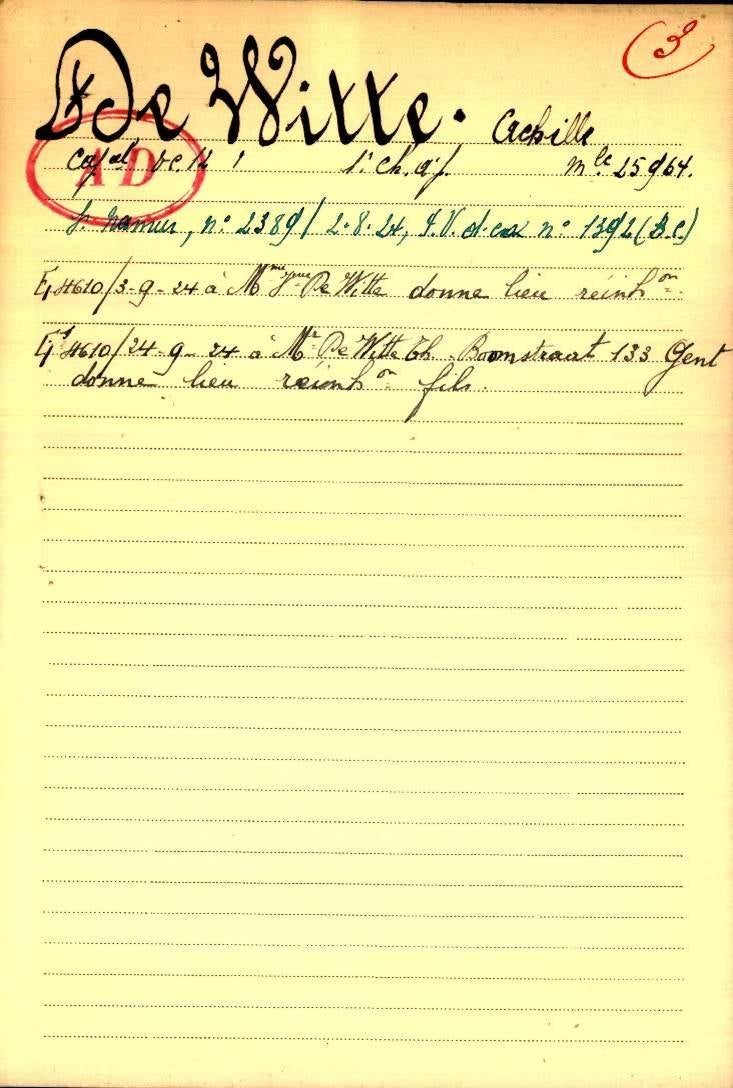 3
De Witte. Achille
A D
Cap al 1r ch. à p. mle 25964.
p. Namur, n° 2389/ 2-8-24, n° 1392 (B.C.)
4610/3-9-24 à Mme Vve De Witte donne lieu réinhon
4610/24-9-24 à Mr De Witte Th. Boomstraat 133 Gent
donne lieu réinhon fils.